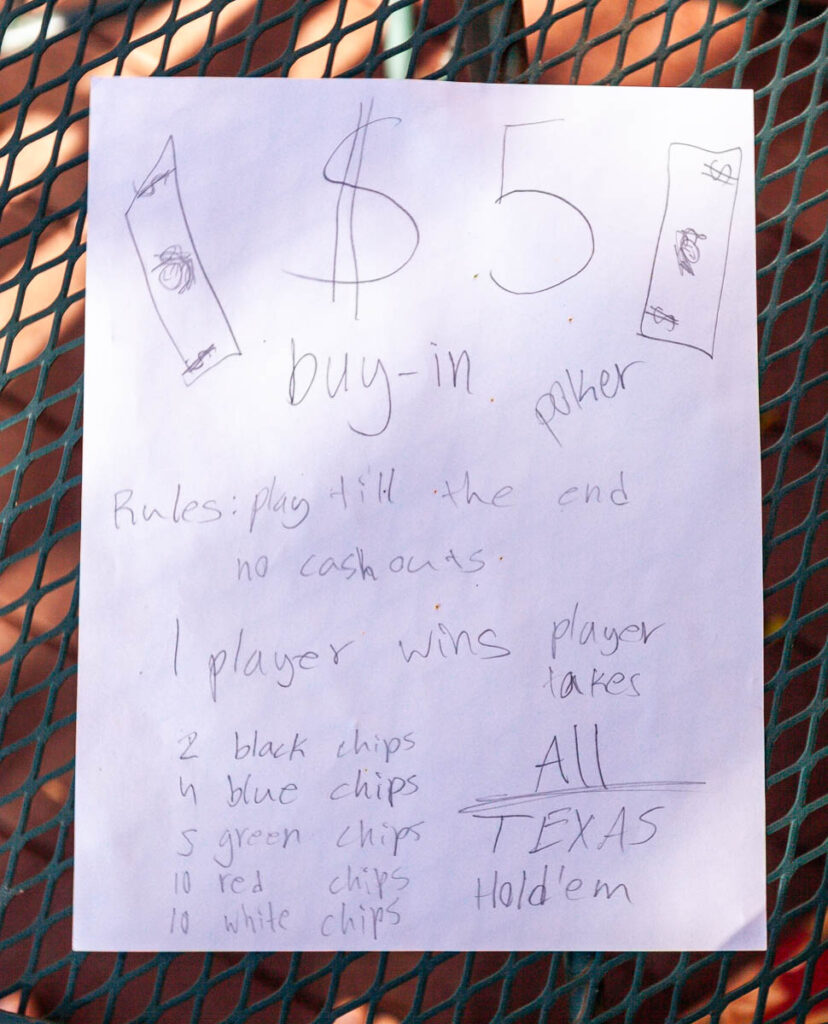 $ 5
$
$
$
$
buy-in
poker
Rules: play till the end
no cash outs
1 player wins player
takes
All
2 black chips
4 blue chips
5 green chips
10 red chips
10 white chips
TEXAS
Hold'em